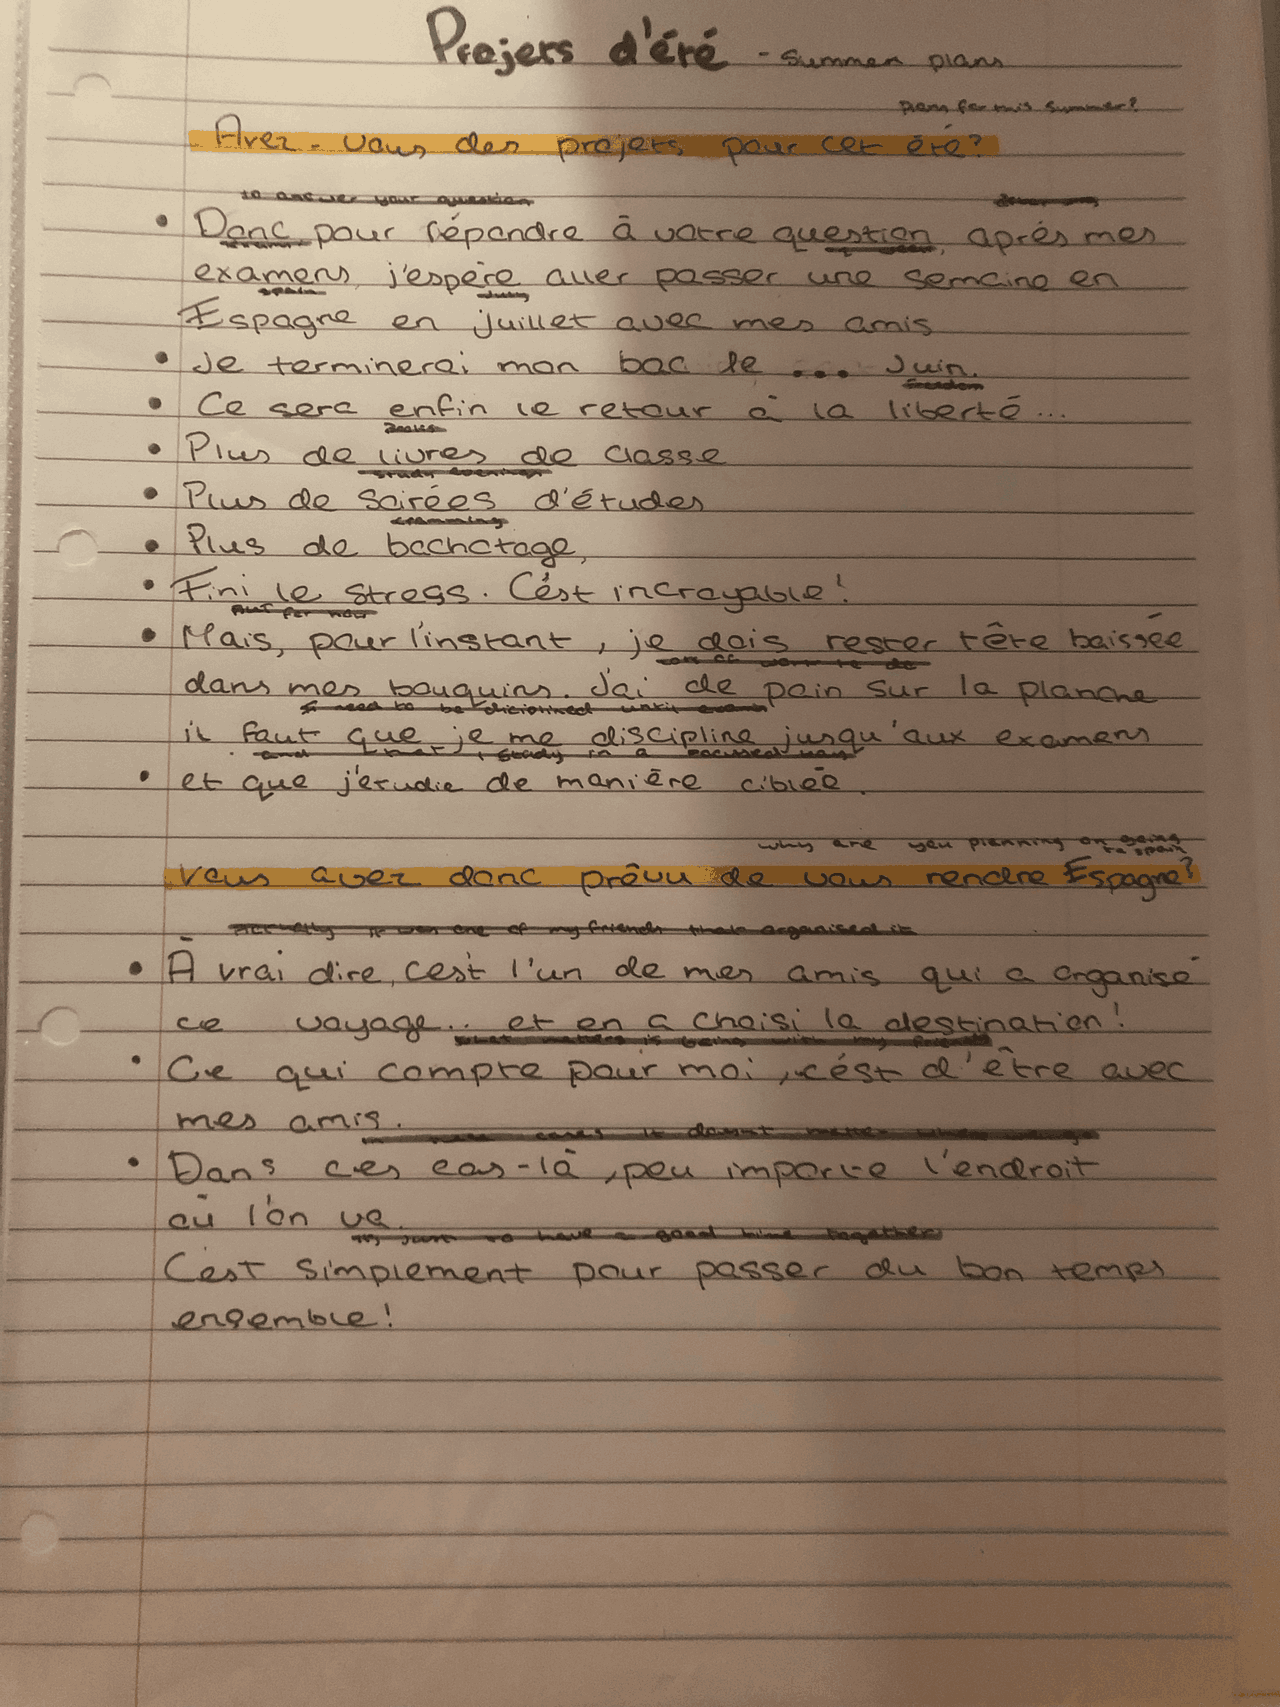 Projets d'été - Summer plans
Plans for this summer?
Avez-vous des projets pour cet été?
to answer your question
• Donc pour répondre à votre question, après mes
examens, j'espère aller passer une semaine en
spain July
Espagne en juillet avec mes amis
• Je terminerai mon bac le ... Juin.
freedom
• Ce sera enfin le retour à la liberté...
Books
• Plus de livres de classe
study evenings
• Plus de soirées d'études
cramming
• Plus de bachotage,
• Fini le stress. C'ést incroyable!
But for now
• Mais, pour l'instant, je dois rester tête baissée
lot of work to do
dans mes bouquins. J'ai de pain sur la planche
I need to be diciplined until exams
il faut que je me discipline jusqu'aux examens
and that I study in a focussed way
• et que j'étudie de manière ciblée.
why are you planning on going
to spain
Vous avez donc prévu de vous rendre Espagne?
Actually it was one of my friends that organised it
• À vrai dire, c'est l'un de mes amis qui a organisé
ce voyage... et en a choisi la destination!
what matters is being with my friends
• Ce qui compte pour moi, c'ést d'être avec
mes amis.
cases it doesnt matter where we go
• Dans ces cas-là, peu importe l'endroit
où l'on va.
its just to have a good time together
C'est simplement pour passer du bon temps
ensemble!